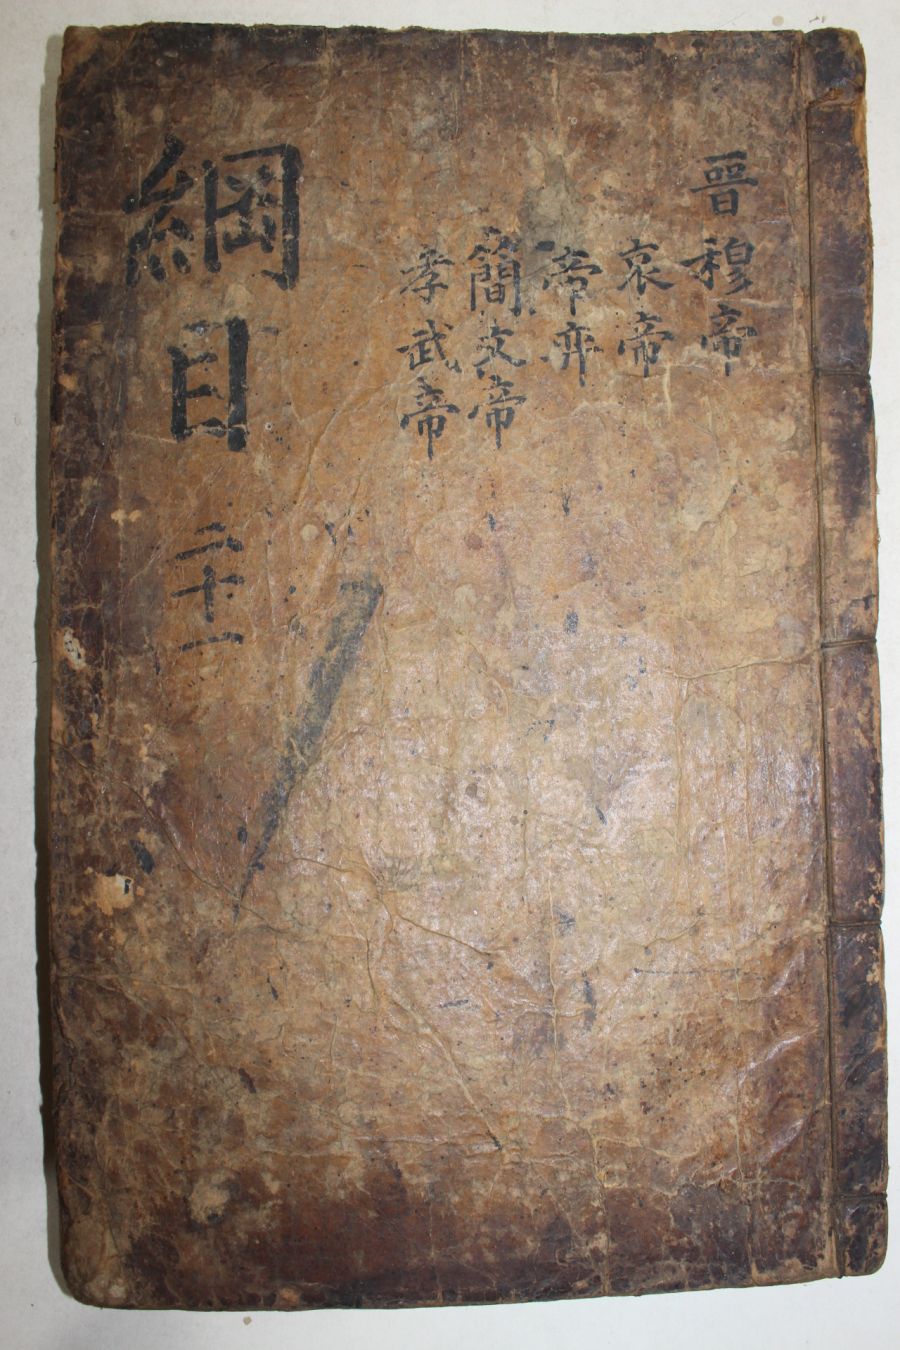 晉穆帝
哀帝
帝奕
簡文帝
孝武帝
綱目二十一